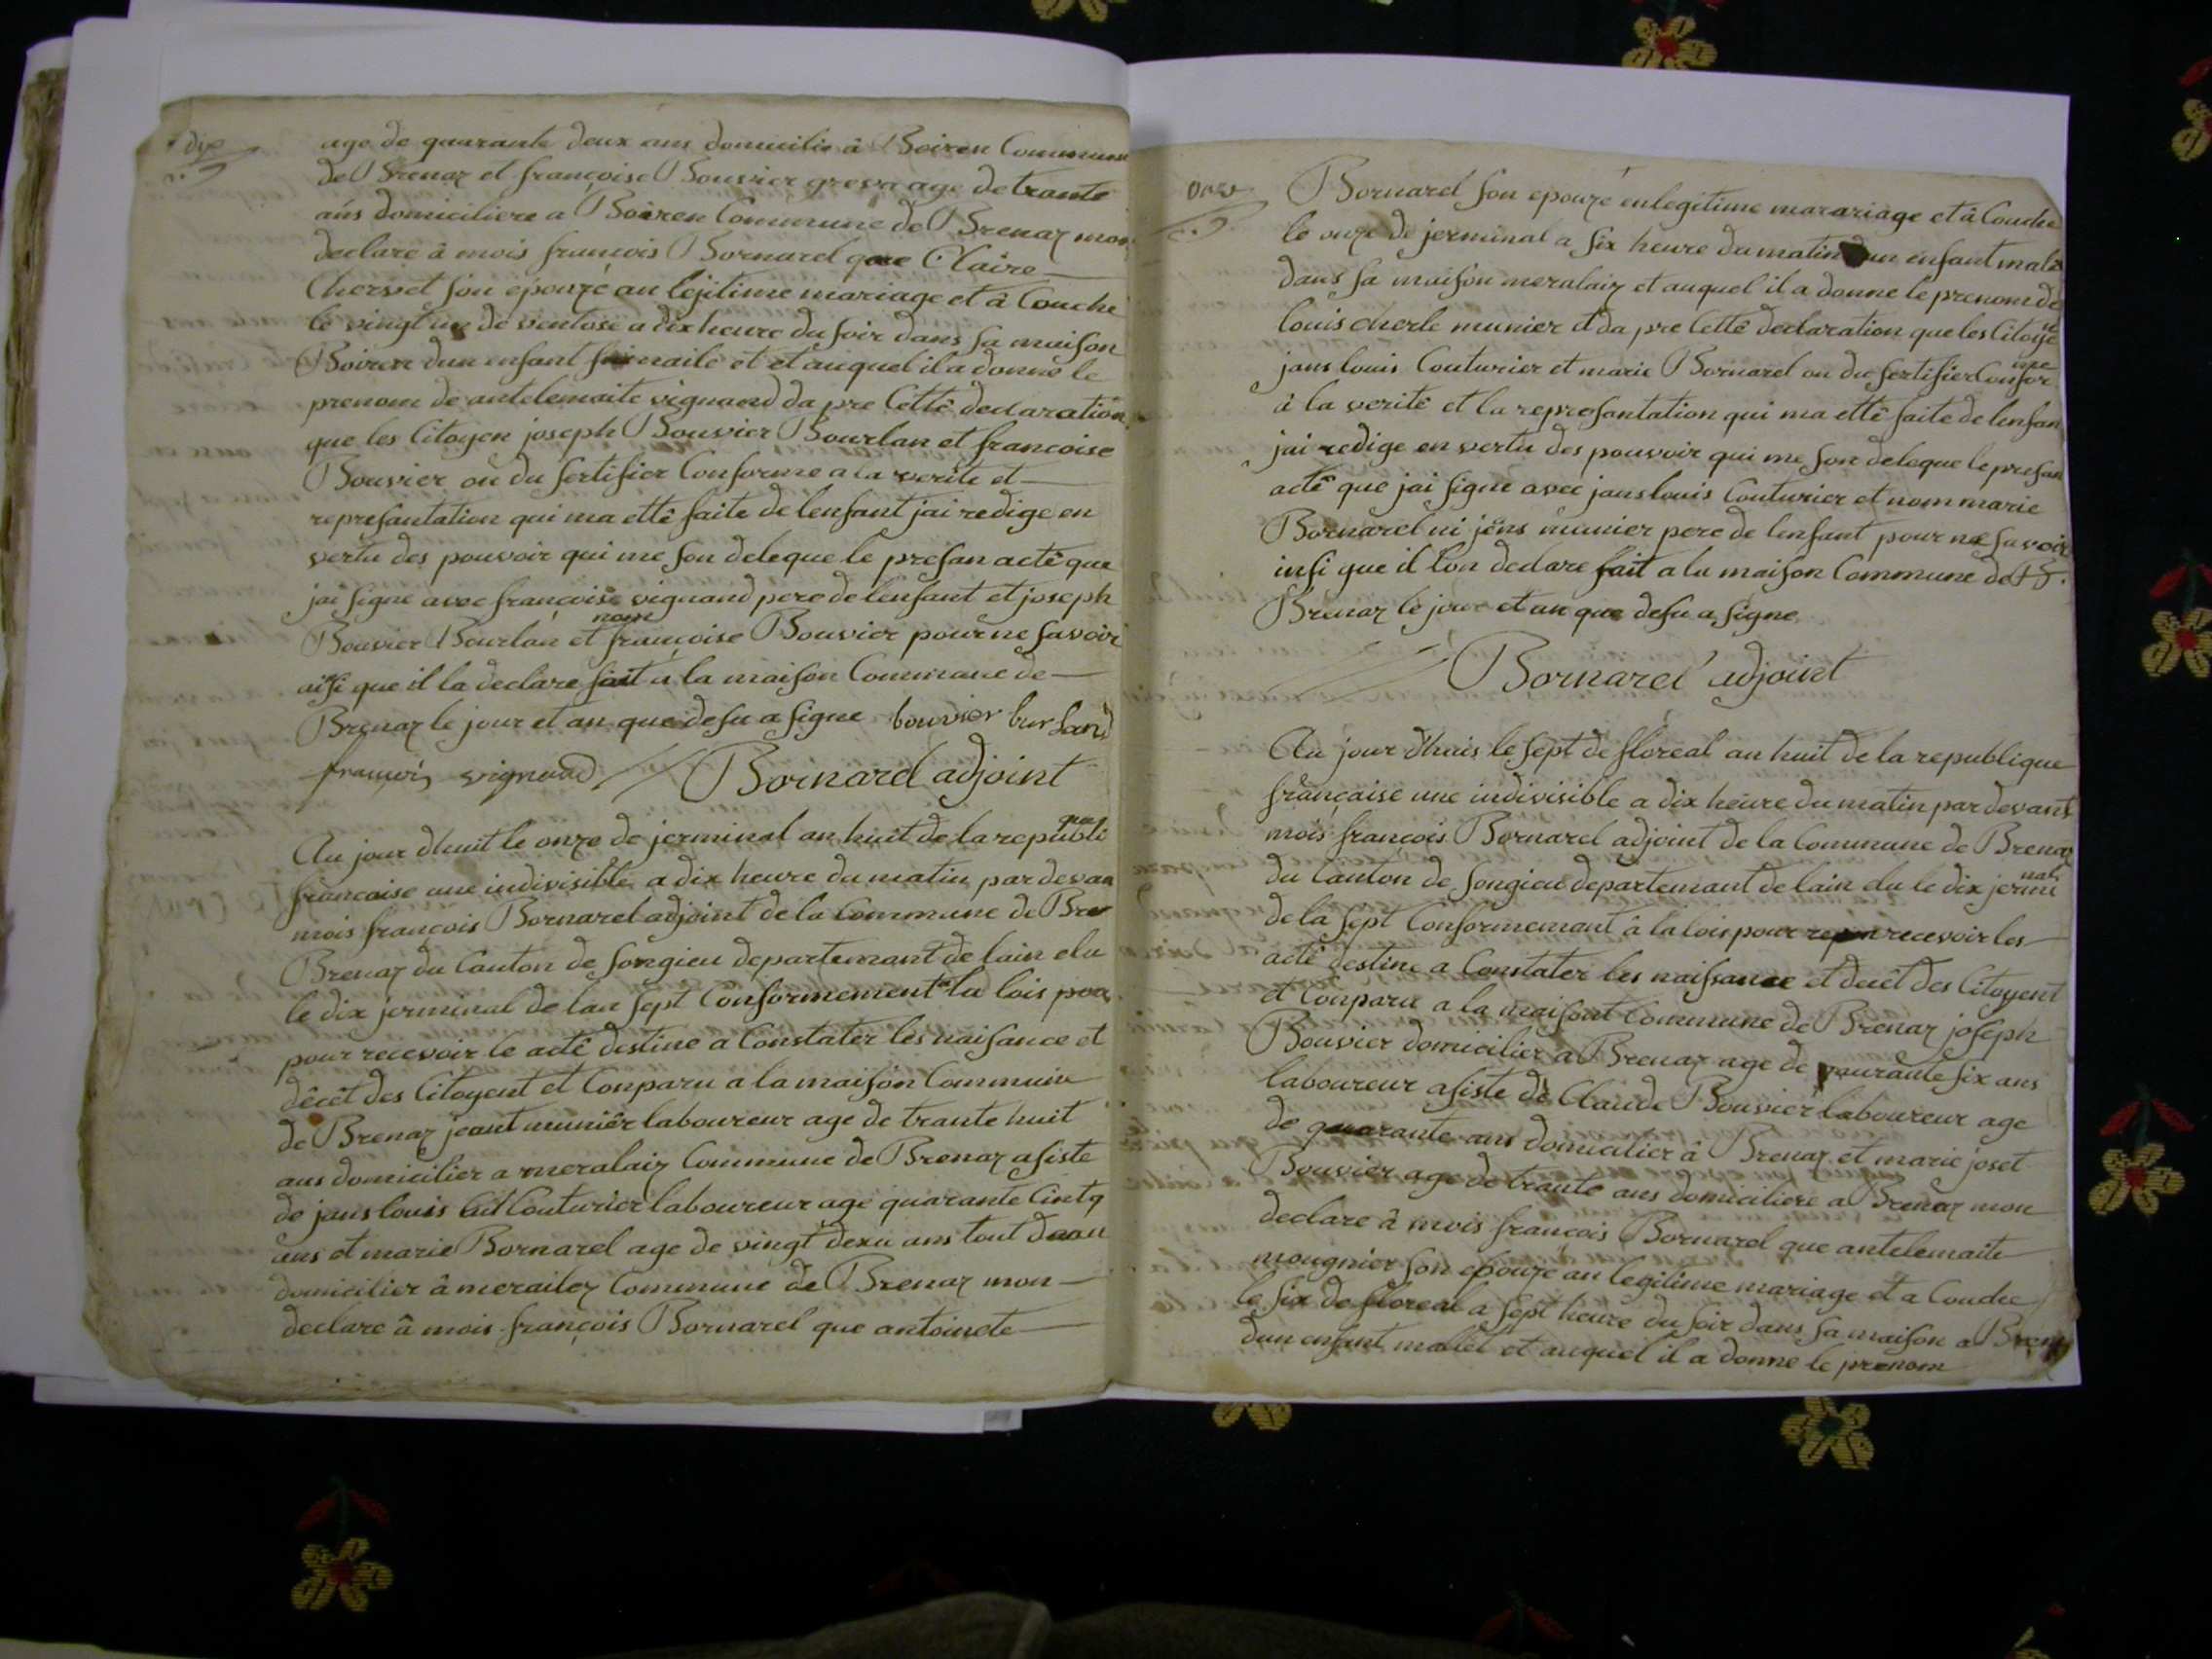 dix
age de quarante deux ans domicilie à Boiren Commune
de Brenaz et françoise Bouvier age de trante
ans domiciliere a Boiren Commune de Brenaz mon
declare à mois françois Bornarel que Claire
Chervet son epouze an lejitime mariage et â Couche
le vingt un de ventose a dix heure du soir dans sa maison
Boiren dun enfant et et auquel il a donné le
prenom de antelemaite vignand da pre Cettê declaration
que les Citoyen joseph Bouvier Bourlan et francoise
Bouvier on du sertifier Conforme a la verite et
represantation qui ma ettê faite de lenfant jai redige en
vertu des pouvoir qui me son deleque le presan actê que
jai signe avec françois vignand pere de lenfant et joseph
Bouvier Bourlan et nom françoise Bouvier pour ne savoir
aisi que il la declare fait a la maison Commune de
Brenaz le jour et an que desu a signe bouvier burland
françois vignand Bornarel adjoint
Au jour dhuit le onze de jerminal an huit de la republique
francaise une indivisible a dix heure du matin par devan
mois francois Bornarel adjoint de la Commune de Bre
Brenaz du Canton de Songieu departemant de lain elu
le dix jerminal de lan sept Conformement a la lois pour
pour recevoir le actê destine a Constater les naisance et
dêcêt des Citoyent et Conparu a la maison Commune
de Brenaz jeant muniêr laboureur age de trante huit
ans domicilier a meralaiz Commune de Brenaz asiste
de jans louis Couturier laboureur age quarante Cintq
ans et marie Bornarel age de vingt dexu ans tout deau
domicilier â meraitez Commune de Brenaz mon
declare â mois françois Bornarel que antoinete
onze
Bornarel son epouze en legitime marariage et à Couche
le onze de jerminal a six heure du matin dun enfant male
dans sa maison meralaiz et auquel il a donne le prenom de
louis cherle munier et da pre Cettê declaration que les Citoyen
jans louis Couturier et marie Bornarel on du sertifier Conforme
à la veritê et la represantation qui ma ettê faite de lenfan
jai redige en vertu des pouvoir qui me son deleque le presan
actê que jai signe avec jans louis Couturier et nom marie
Bornarel ni jêns munier pere de lenfant pour ne savoir
insi que il lon declare fait a la maison Commune de
Brenaz le jour et an que desu a signe
Bornarel adjoint
Au jour dhuis le sept de floreal an huit de la republique
française une indivisible a dix heure du matin par devant
mois françois Bornarel adjoint de la Commune de Brenaz
du Canton de Songieu departemant de lain elu le dix jerminal
de la sept Conformemant à la lois pour recevoir les
actê destine a Constater les naissance et decêt des Citoyent
et Conparu a la maisont Commune de Brenaz joseph
Bouvier domicilier a Brenaz age de quarante six ans
laboureur asiste de Claude Bouvier laboureur age
de quarante ans domicilier â Brenaz et marie joset
Bouvier age de trante ans domiciliere a Brenaz mon
declare â mois françois Bornarel que antelemaite
mougnier son epouze an legitime mariage et a Couche
le six de floreal a sept heure du soir dans sa maison a Brenaz
dun enfant mallêt et auquel il a donne le prenom